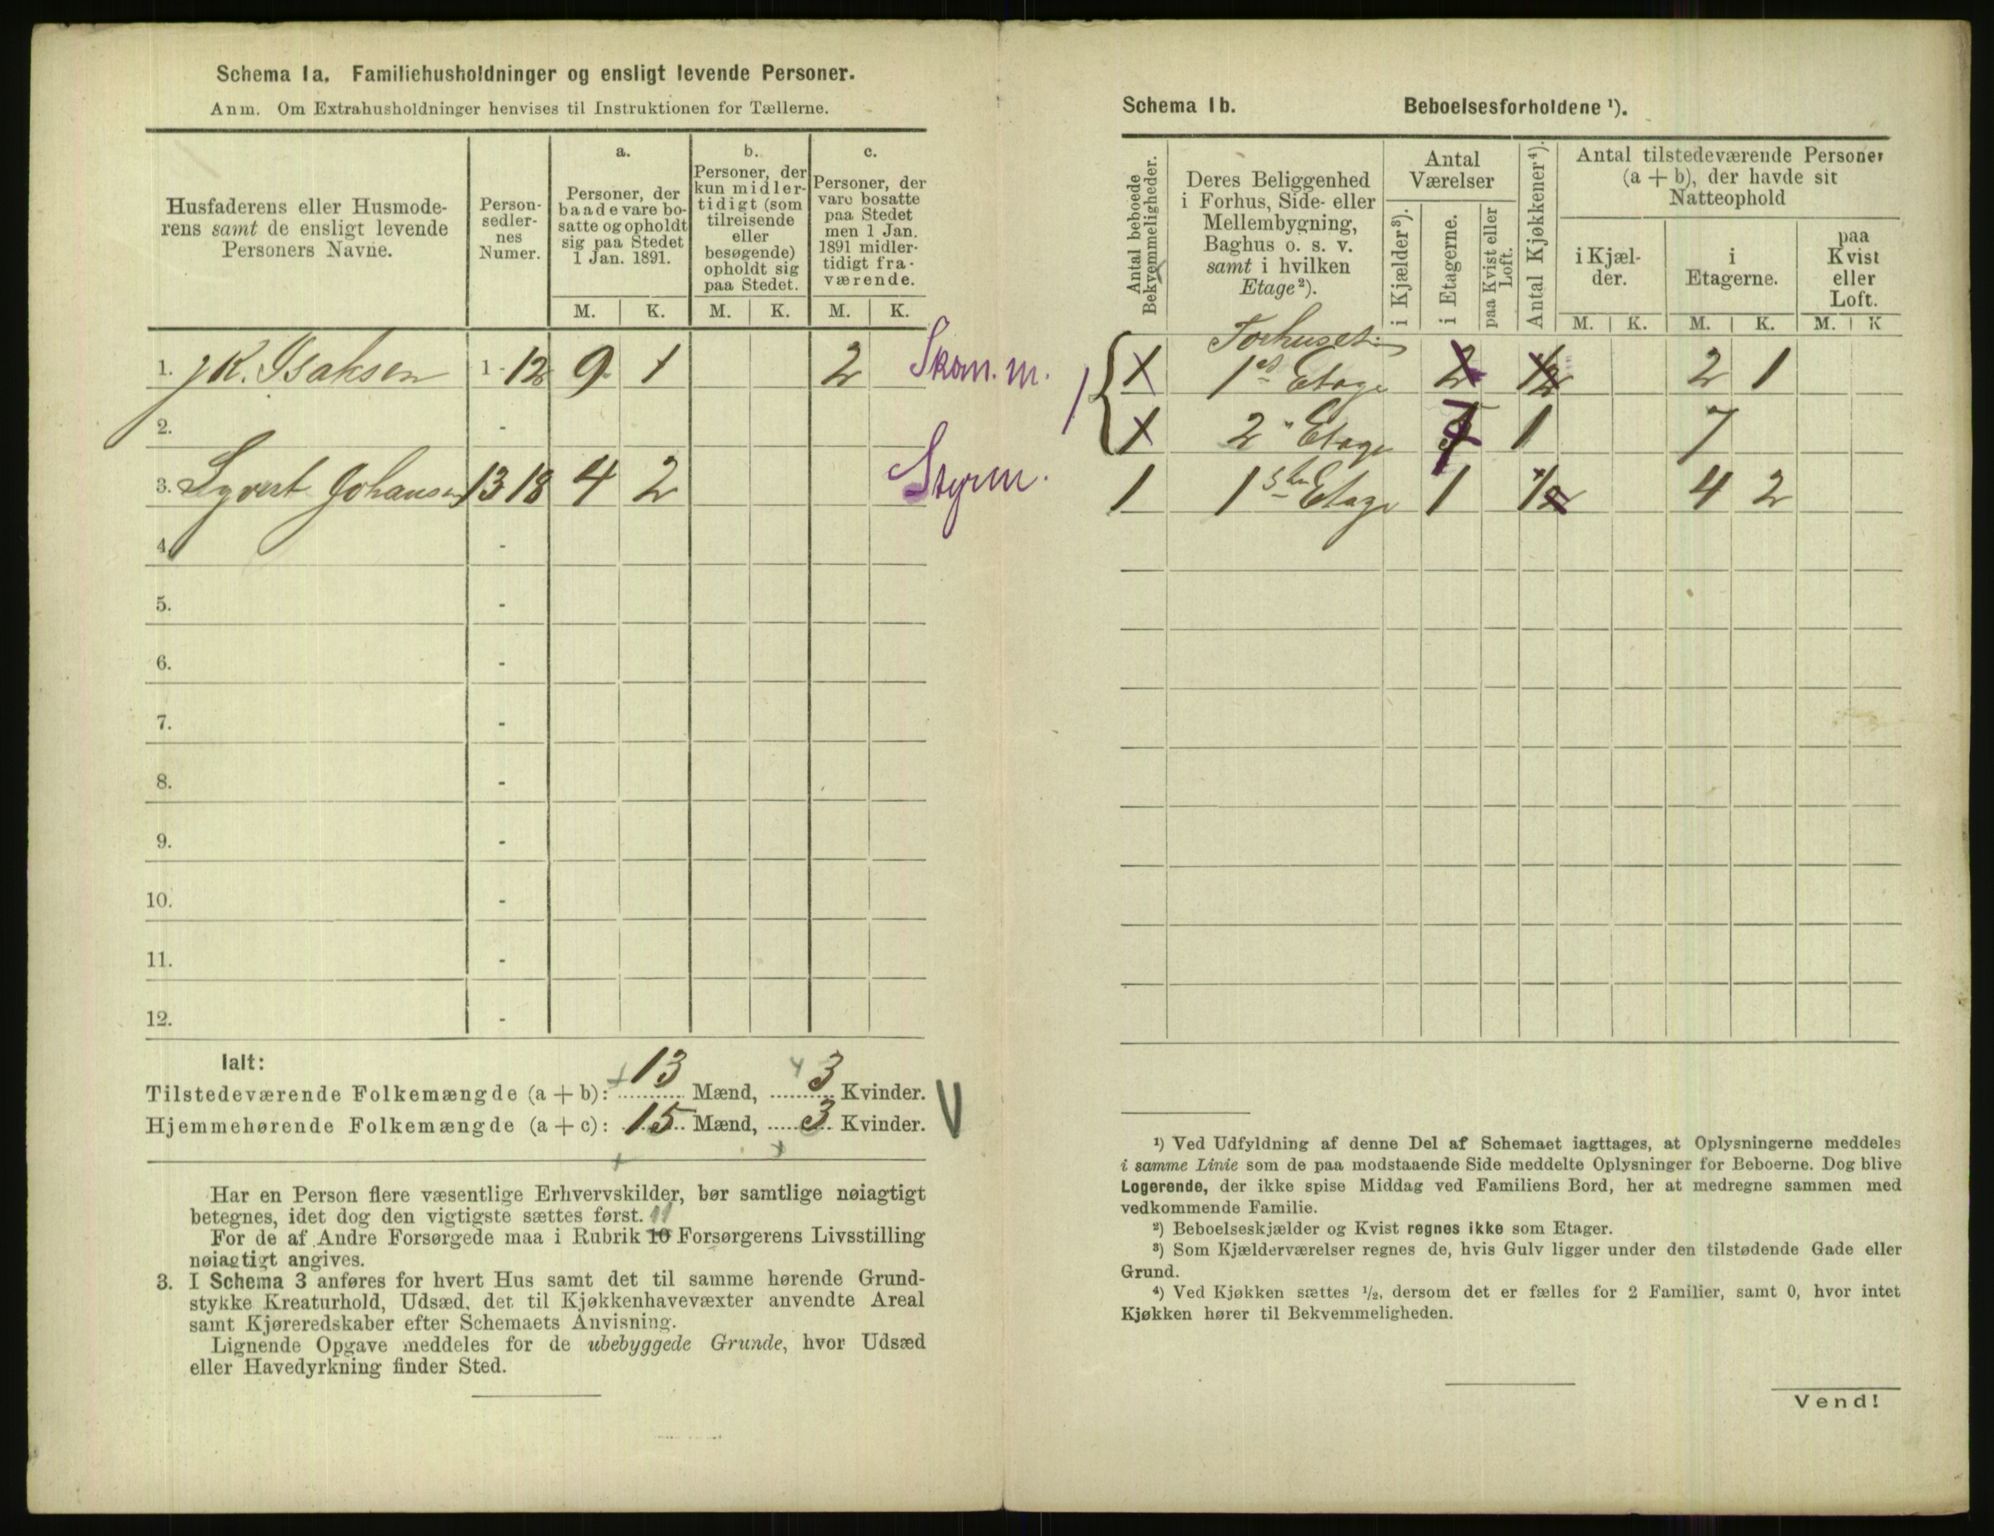 Schema 1a. Familiehusholdninger og ensligt levende Personer.
Anm. Om Extrahusholdninger henvises til Instruktionen for Tællerne.
Husfaderens eller Husmode-
rens samt de ensligt levende
Personers Navne.
Person-
sedler-
nes
Numer.
a.
Personer, der
baade vare bo-
satte og opholdt
sig paa Stedet
1 Jan. 1891.
b.
Personer, der
kun midler-
tidigt (som
tilreisende
eller
besøgende)
opholdt sig
paa Stedet.
c.
Personer, der
vare bosatte
paa Stedet
men 1 Jan.
1891 midler-
tidigt fra-
værende.
M. K. M. K. M. K.
1. K. Isaksen 1 - 12 9 1 2 Skom. m.
2. -
3. Syvert Johansen 13 18 4 2 Styrm.
4. -
5. -
6. -
7. -
8. -
9. -
10. -
11. -
12. -
Ialt:
Tilstedeværende Folkemængde (a + b): 13 Mænd, 3 Kvinder.
Hjemmehørende Folkemængde (a + c): 15 Mænd, 3 Kvinder.
Har en Person flere væsentlige Erhvervskilder, bør samtlige nøiagtigt
betegnes, idet dog den vigtigste sættes først.
11
For de af Andre Forsørgede maa i Rubrik 10 Forsørgerens Livsstilling
nøiagtigt angives.
3. I Schema 3 anføres for hvert Hus samt det til samme hørende Grund-
stykke Kreaturhold, Udsæd, det til Kjøkkenhavevæxter anvendte Areal
samt Kjøreredskaber efter Schemaets Anvisning.
Lignende Opgave meddeles for de ubebyggede Grunde, hvor Udsæd
eller Havedyrkning finder Sted.
Schema 1b. Beboelsesforholdene ¹).
Antal beboede
Bekvemmeligheder.
Deres Beliggenhed
i Forhus, Side- eller
Mellembygning,
Baghus o. s. v.
samt i hvilken
Etage²).
Antal
Værelser
i Kjælder³).
i Etagerne.
paa Kvist eller
Loft.
Antal Kjøkkener⁴).
Antal tilstedeværende Personer
(a + b), der havde sit
Natteophold
i Kjæl-
der.
i
Etagerne.
paa
Kvist
eller
Loft.
M. K. M. K. M. K
Forhuset
1 1 1ste Etage 2 1/2 2 1
1 2 " Etage 7 1 7
1 1ste Etage 1 1/2 4 2
¹) Ved Udfyldning af denne Del af Schemaet iagttages, at Oplysningerne meddeles
i samme Linie som de paa modstaaende Side meddelte Oplysninger for Beboerne. Dog blive
Logerende, der ikke spise Middag ved Familiens Bord, her at medregne sammen med
vedkommende Familie.
²) Beboelseskjælder og Kvist regnes ikke som Etager.
³) Som Kjælderværelser regnes de, hvis Gulv ligger under den tilstødende Gade eller
Grund.
⁴) Ved Kjøkken sættes ½, dersom det er fælles for 2 Familier, samt 0, hvor intet
Kjøkken hører til Bekvemmeligheden.
Vend!